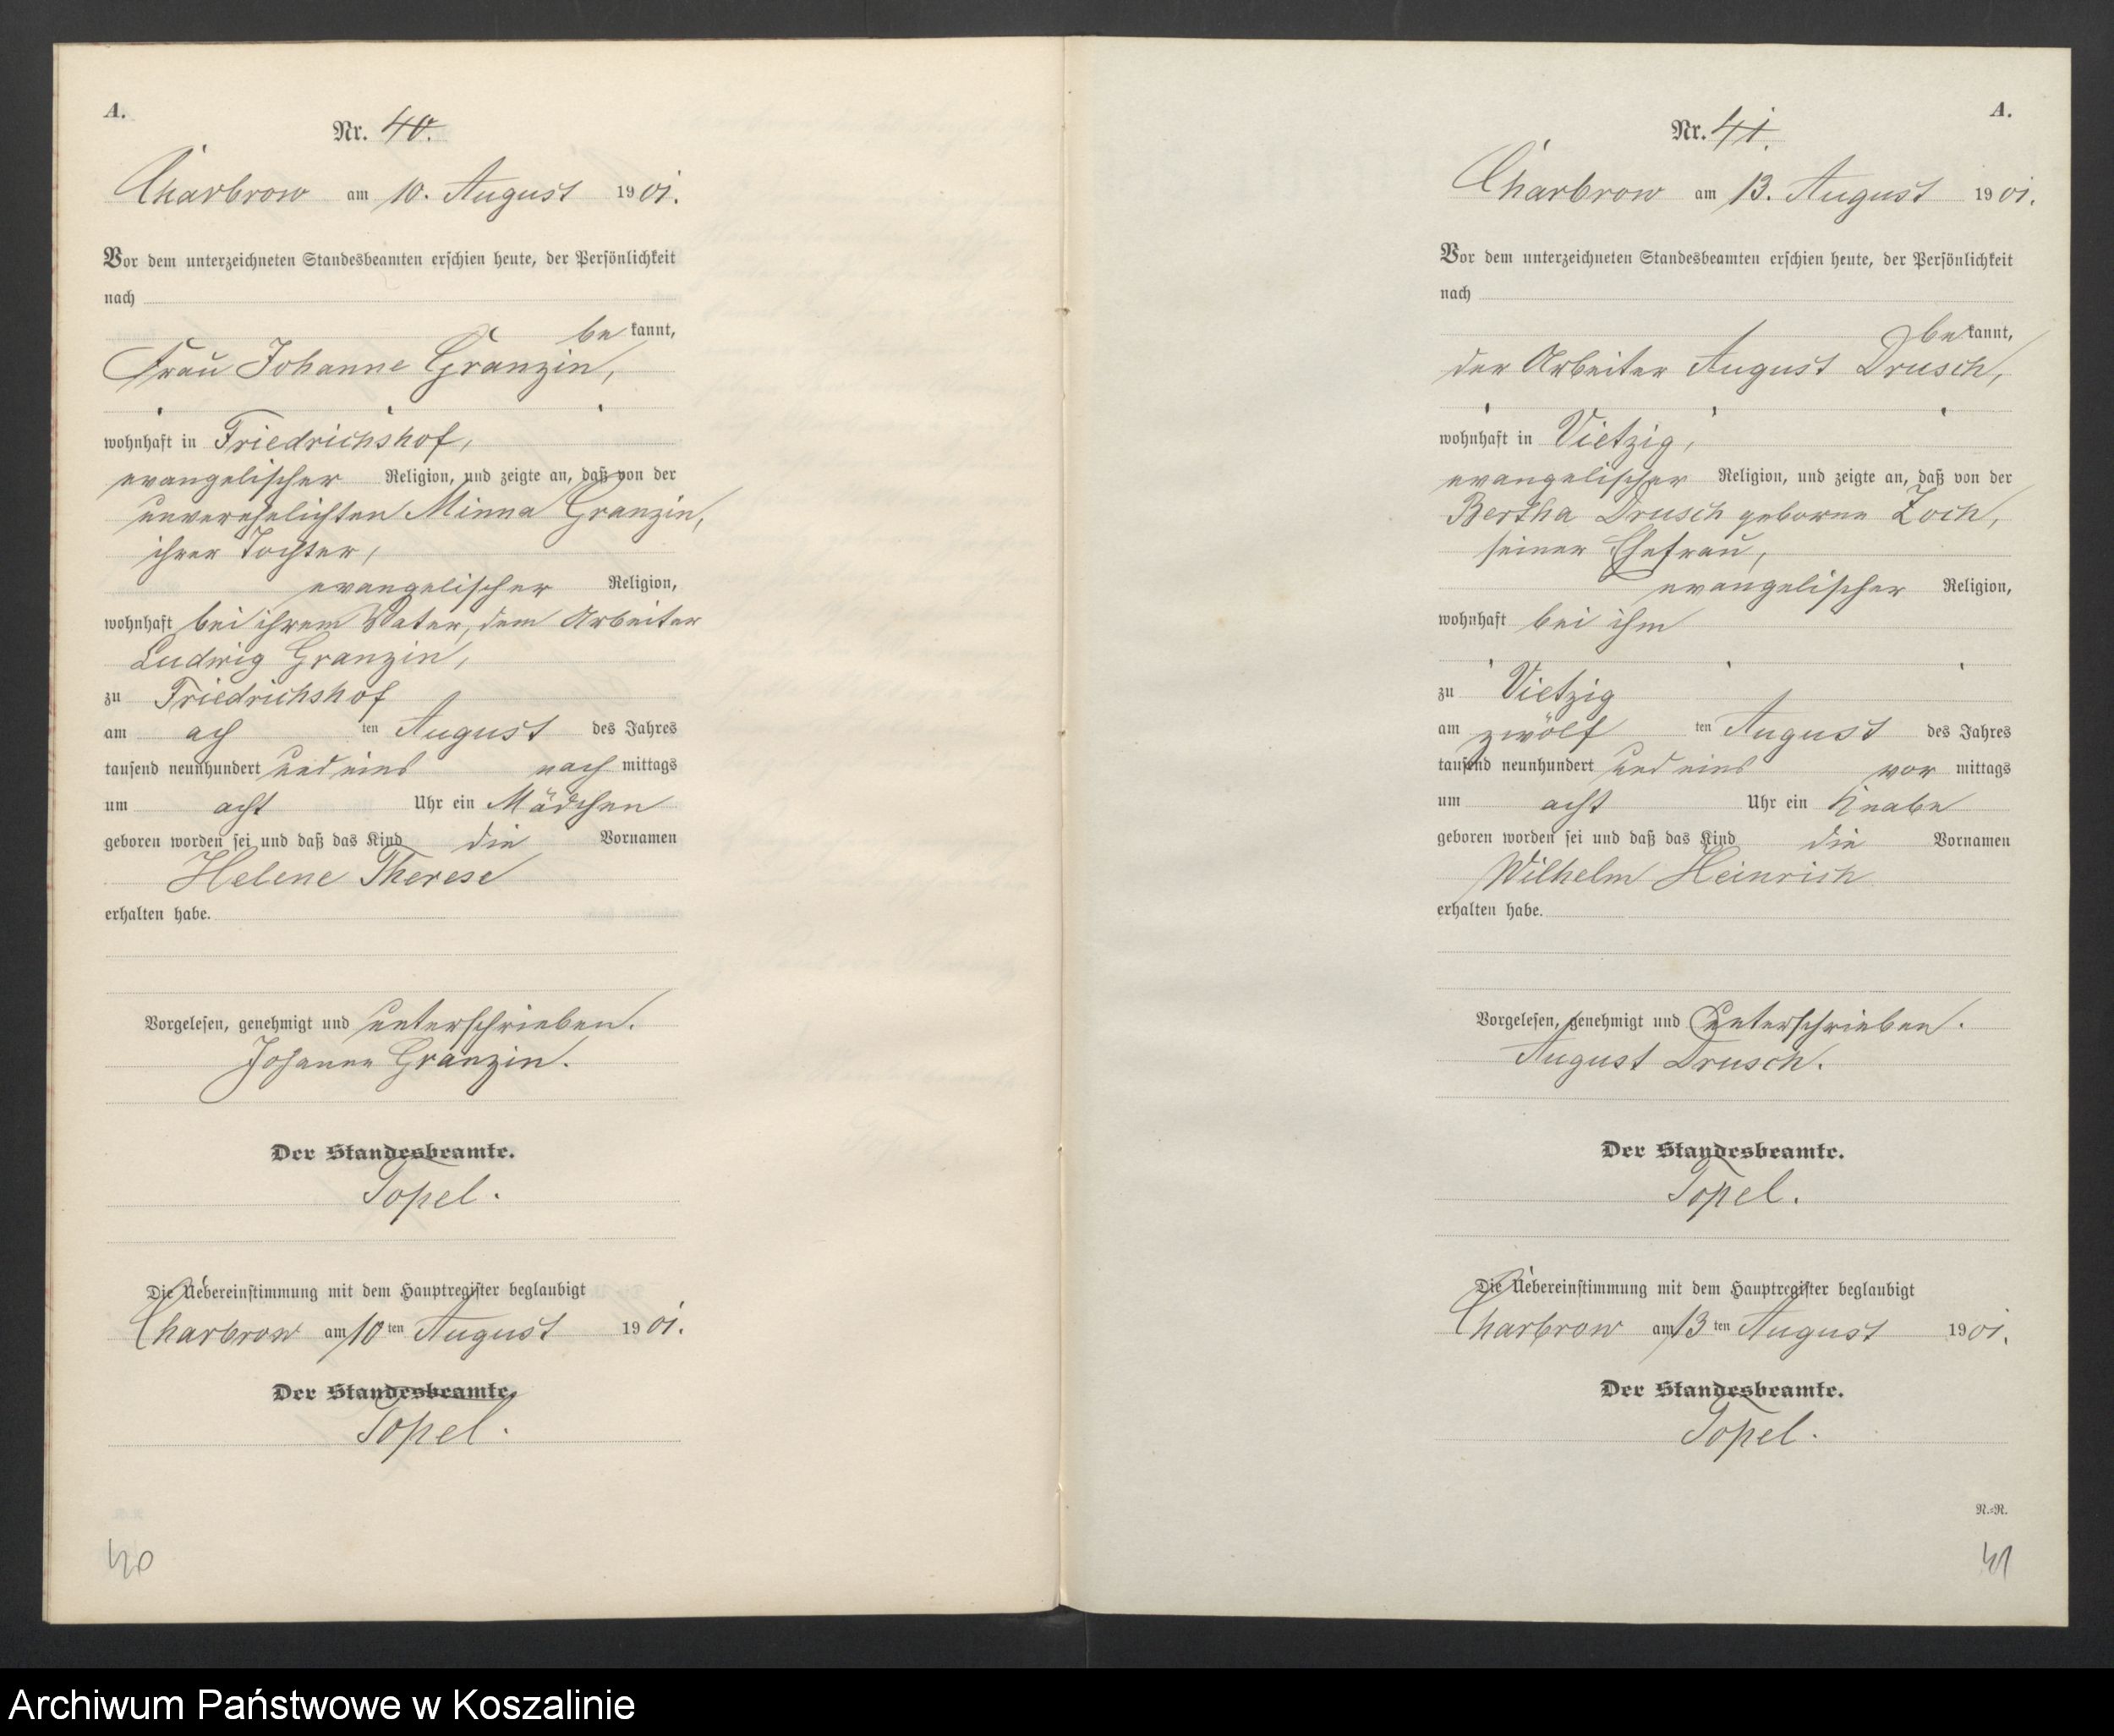 A.
Nr. 40.
Charbrow am 10. August 1901.
Vor dem unterzeichneten Standesbeamten erschien heute, der Persönlichkeit
nach
be kannt,
Frau Johanne Granzin,
wohnhaft in Friedrichshof,
evangelischer Religion, und zeigte an, daß von der
unverehelichten Minna Granzin,
ihrer Tochter,
evangelischer Religion,
wohnhaft bei ihrem Vater, dem Arbeiter
Ludwig Granzin,
zu Friedrichshof
am ach ten August des Jahres
tausend neunhundert und eins nach mittags
um acht Uhr ein Mädchen
geboren worden sei und daß das Kind die Vornamen
Helene Therese
erhalten habe.
Vorgelesen, genehmigt und unterschrieben.
Johanne Granzin.
Der Standesbeamte.
Topel.
Die Uebereinstimmung mit dem Hauptregister beglaubigt
Charbrow am 10 ten August 1901.
Der Standesbeamte.
Topel.
40
A.
Nr. 41.
Charbrow am 13. August 1901.
Vor dem unterzeichneten Standesbeamten erschien heute, der Persönlichkeit
nach
be kannt,
der Arbeiter August Drusch,
wohnhaft in Vietzig,
evangelischer Religion, und zeigte an, daß von der
Bertha Drusch geborne Zoch,
seiner Ehefrau,
evangelischer Religion,
wohnhaft bei ihm
zu Vietzig
am zwölf ten August des Jahres
tausend neunhundert und eins vor mittags
um acht Uhr ein Knabe
geboren worden sei und daß das Kind die Vornamen
Wilhelm Heinrich
erhalten habe.
Vorgelesen, genehmigt und unterschrieben.
August Drusch.
Der Standesbeamte.
Topel.
Die Uebereinstimmung mit dem Hauptregister beglaubigt
Charbrow am 13 ten August 1901.
Der Standesbeamte.
Topel.
N.-R.
41
Archiwum Państwowe w Koszalinie